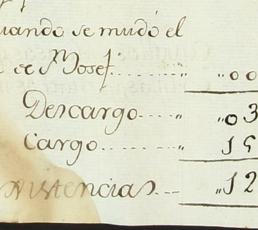 uando se mudó el
de Sn Josef........„ „00
Descargo....„ „03
Cargo......„ 15
existencias.... „12